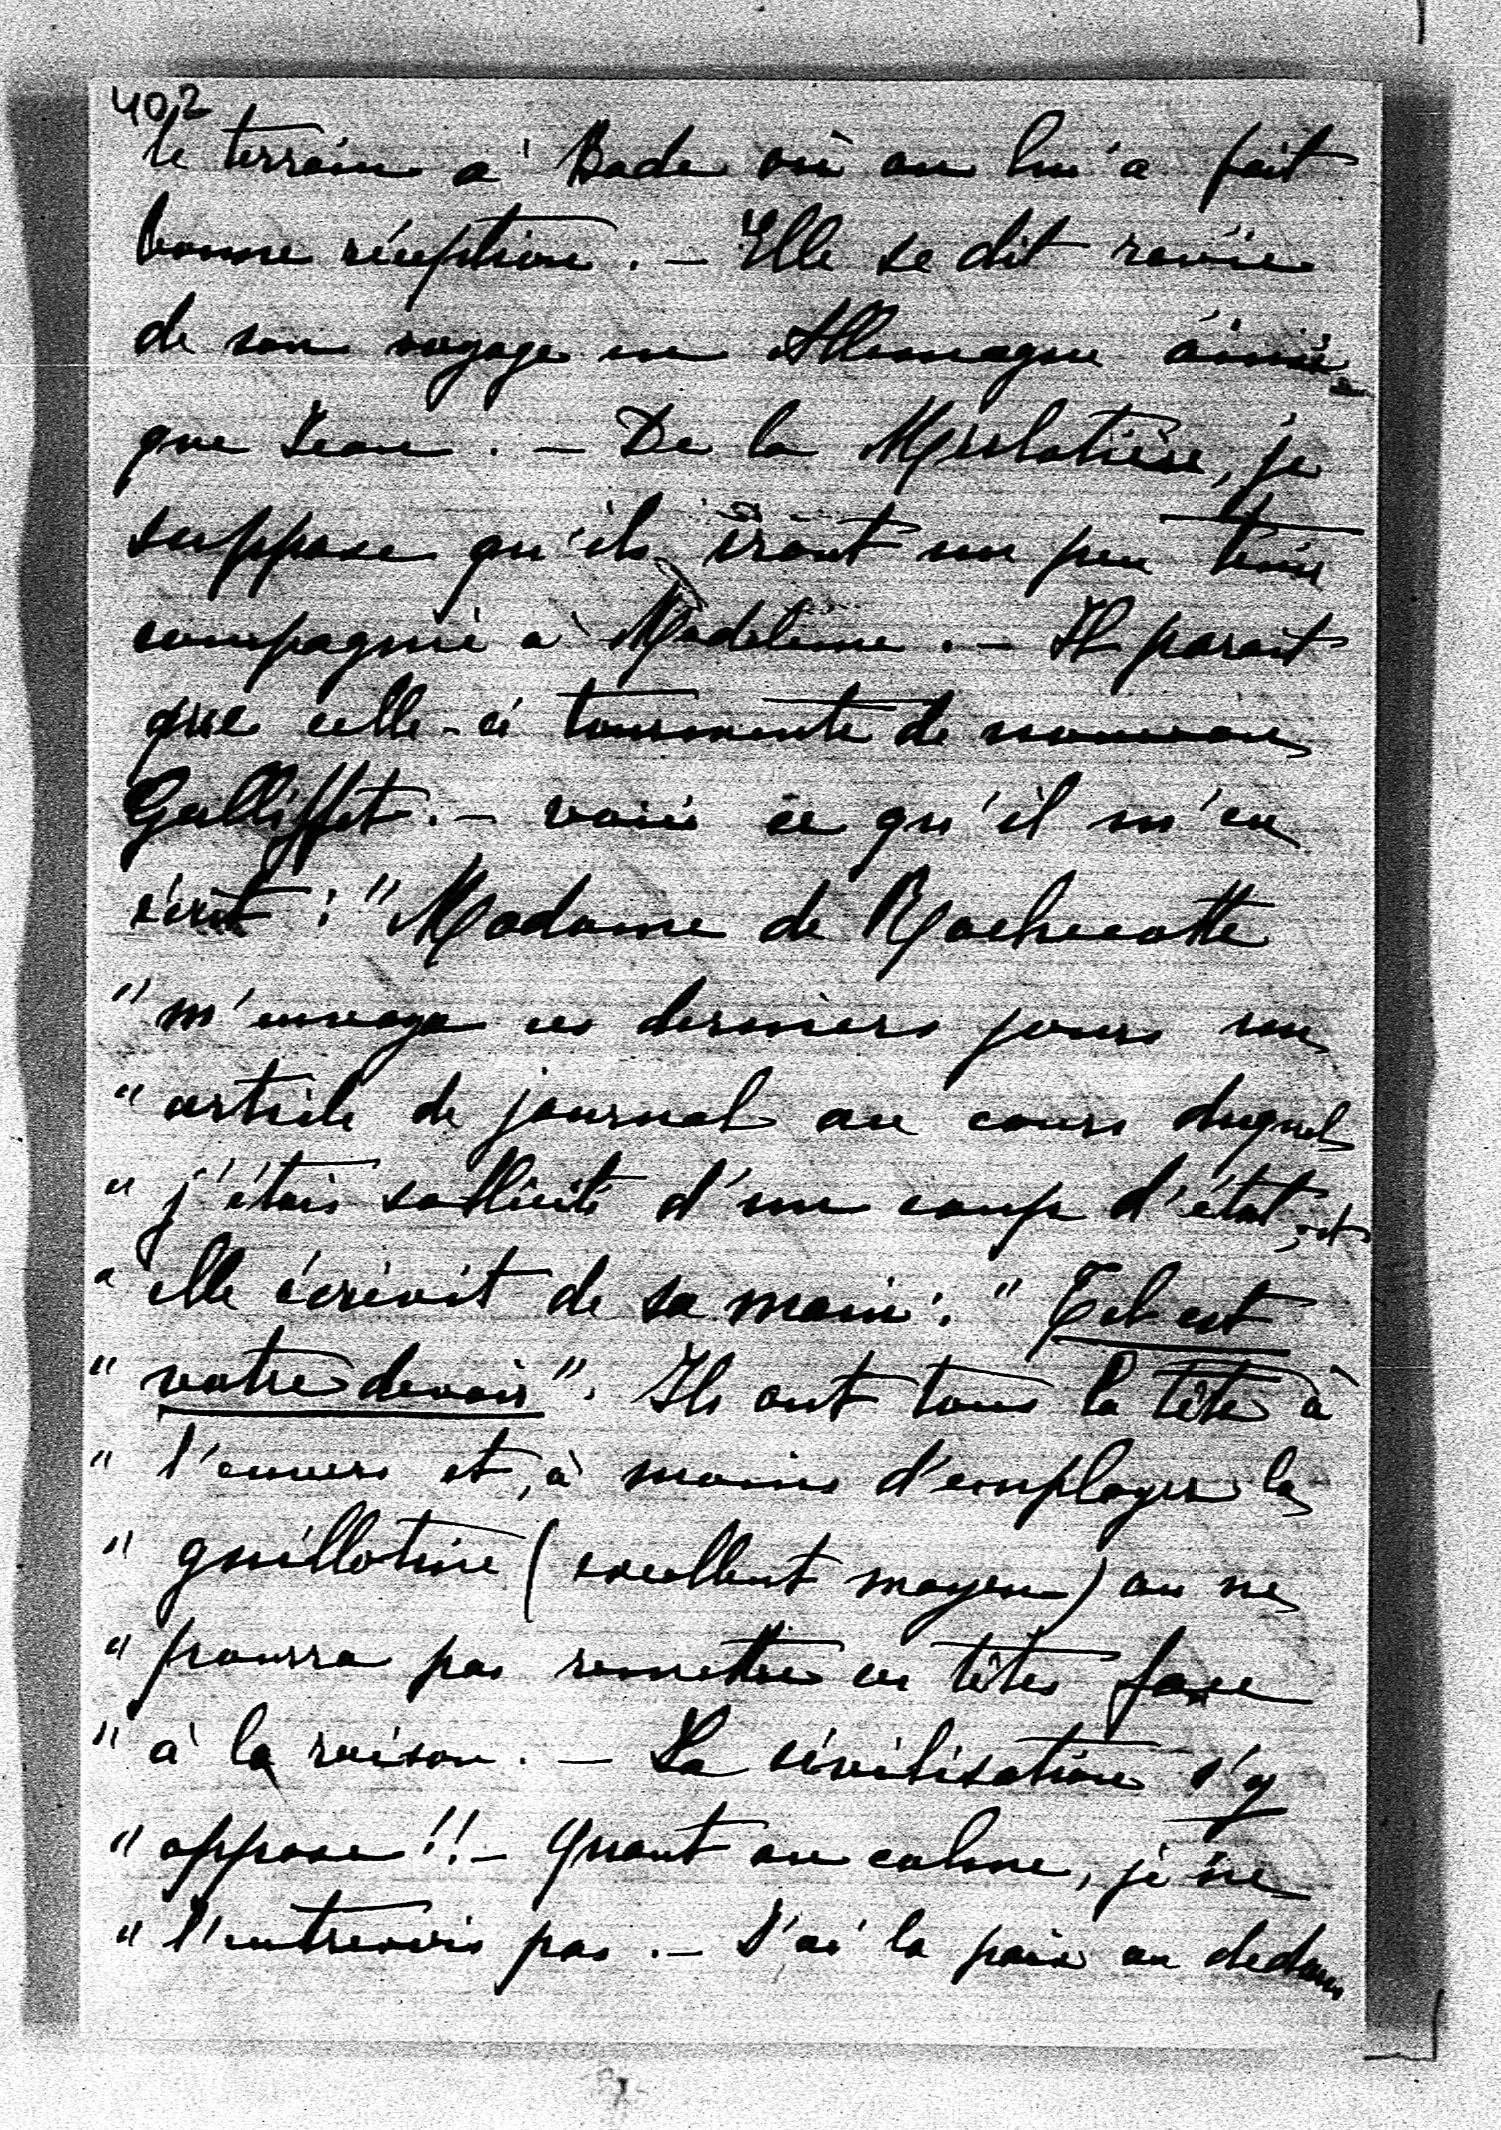 402
le terrain à Bade où on lui a fait
bonne réception. — Elle se dit ravie
de son voyage en Allemagne ainsi
que Jean. — De la Merlatière, je
suppose qu'ils iront un peu tenir
compagnie à Madeleine. — Il parait
que celle-ci tourmente de nouveau
Galliffet. — voici ce qu'il m'en
écrit : "Madame de Rochecotte
" m'envoya ces derniers jours un
" article de journal au cours duquel
" j'étais sollicité d'un coup d'état, et
" elle écrivit de sa main : " Tel est
" votre devoir ". Ils ont tous la tête à
" l'envers et, à moins d'employer la
" guillotine (excellent moyen) on ne
" pourra pas remettre ces têtes face
" à la raison. — La civilisation s'y
" oppose !! — Quant au calme, je ne
" l'entrevois pas. — J'ai la paix au dedans